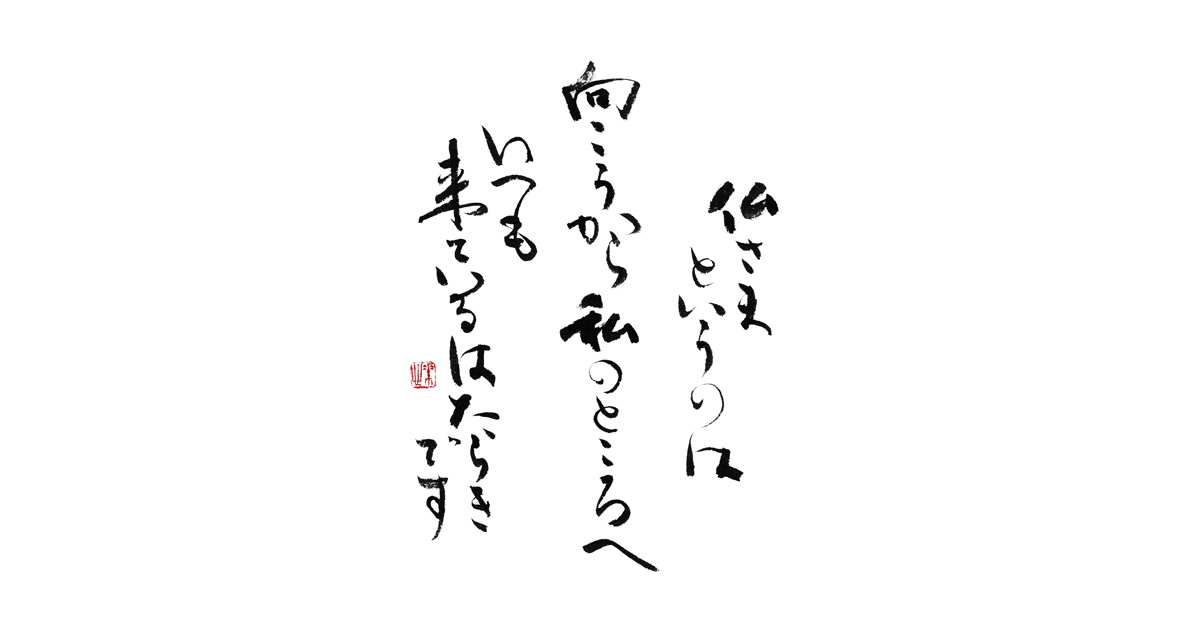 仏さま
というのは
向こうから私のところへ
いつも
来ているはたらき
です